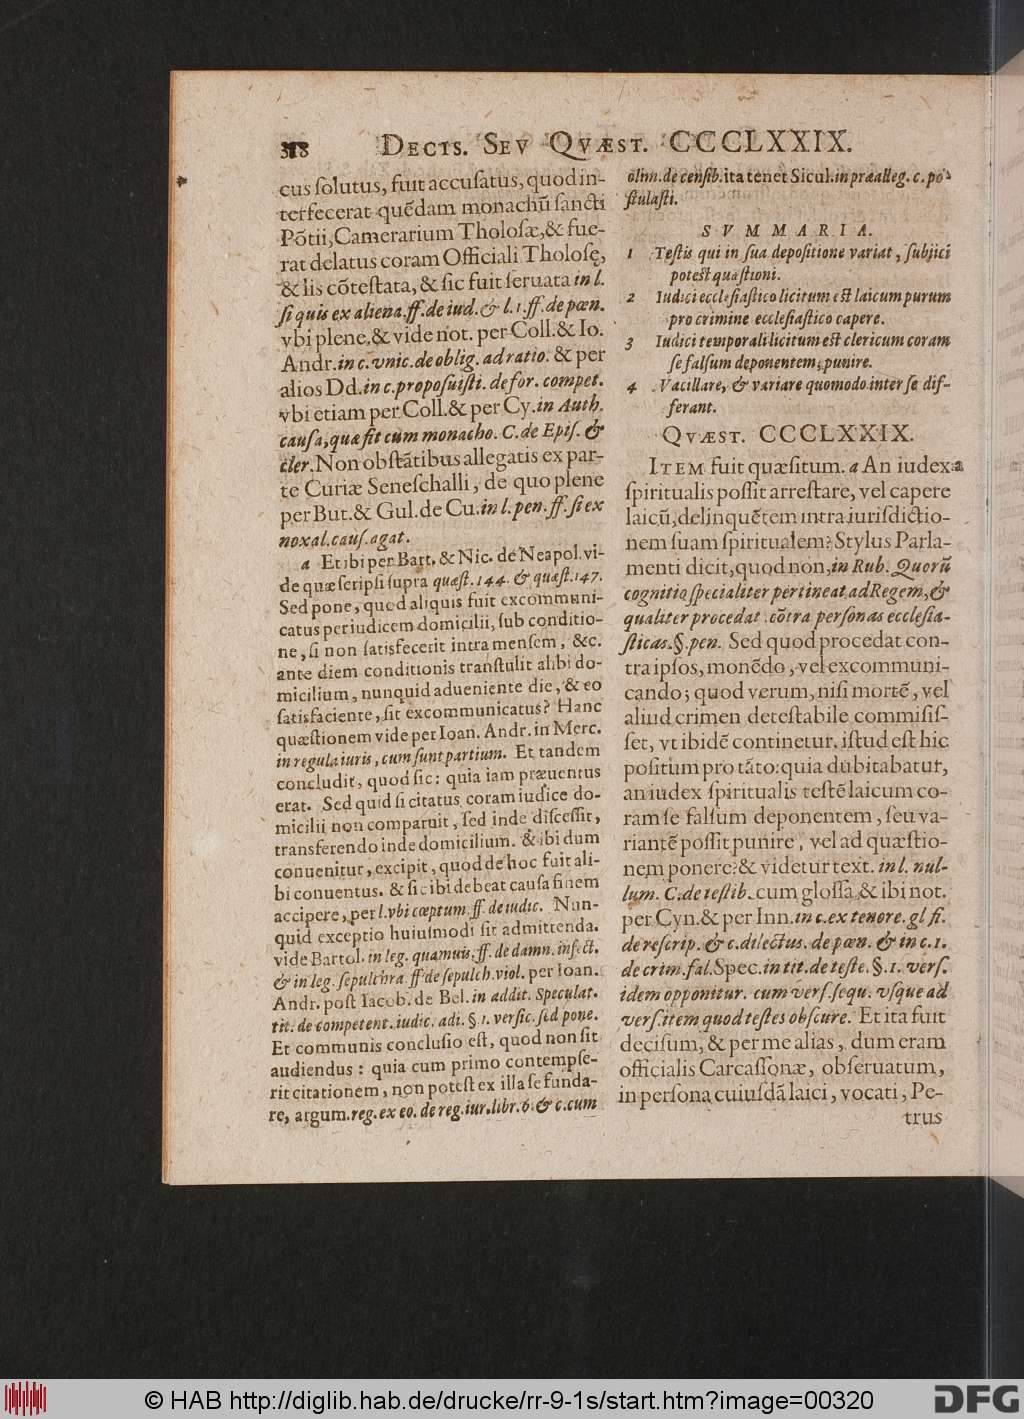 318 DECIS. SEV QVÆST. CCCCLXXIX.
cus ſolutus, fuit accuſatus, quod in-
terfecerat quẽdam monachũ ſancti
Põtii, Camerarium Tholoſæ, & fue-
rat delatus coram Officiali Tholoſę,
& lis cõteſtata, & ſic fuit ſeruata in l.
ſi quis ex aliena. ff. de iud. & l. 1. ff. de pœn.
vbi plene. & vide not. per Coll. & Io.
Andr. in c. vnic. de oblig. ad ratio. & per
alios Dd. in c. propoſuiſti. de for. compet.
vbi etiam per Coll. & per Cy. in Auth.
cauſa, quæ fit cum monacho. C. de Epiſ. &
cler. Non obſtãtibus allegatis ex par-
te Curiæ Seneſchalli, de quo plene
per But. & Gul. de Cu. in l. pen. ff. ſi ex
noxal. cauſ. agat.
a Et ibi per Bart. & Nic. de Neapol. vi-
de quæ ſcripſi ſupra quæſt. 144. & quæſt. 147.
Sed pone, quod aliquis fuit excommuni-
catus per iudicem domicilii, ſub conditio-
ne, ſi non ſatisfecerit intra menſem, &c.
ante diem conditionis tranſtulit alibi do-
micilium, nunquid adueniente die, & eo
ſatisfaciente, ſit excommunicatus? Hanc
quæſtionem vide per Ioan. Andr. in Merc.
in regula iuris, cum ſunt partium. Et tandem
concludit, quod ſic: quia iam præuentus
erat. Sed quid ſi citatus coram iudice do-
micilii non comparuit, ſed inde diſceſſit,
transferendo inde domicilium. & ibi dum
conuenitur, excipit, quod de hoc fuit ali-
bi conuentus. & ſic ibi debeat cauſa finem
accipere, per l. vbi cœptum. ff. de iudic. Nun-
quid exceptio huiuſmodi ſit admittenda.
vide Bartol. in leg. quamuis. ff. de damn. infect.
& in leg. ſepulchra. ff. de ſepulch. viol. per Ioan.
Andr. poſt Iacob. de Bel. in addit. Speculat.
tit. de competent. iudic. adi. § 1. verſic. ſed pone.
Et communis concluſio eſt, quod non ſit
audiendus: quia cum primo contempſe-
rit citationem, non poteſt ex illa ſe funda-
re, argum. reg. ex eo. de reg. iur. libr. 6. & c. cum
olim. de cenſib. ita tenet Sicul. in præalleg. c. po-
ſtulaſti.
SVMMARIA.
1 Teſtis qui in ſua depoſitione variat, ſubjici
poteſt quæſtioni.
2 Iudici eccleſiaſtico licitum eſt laicum purum
pro crimine eccleſiaſtico capere.
3 Iudici temporali licitum eſt clericum coram
ſe falſum deponentem, punire.
4 Vacillare, & variare quomodo inter ſe dif-
ferant.
QVÆST. CCCCLXXIX.
ITEM fuit quæſitum. a An iudex a
ſpiritualis poſſit arreſtare, vel capere
laicũ, delinquẽtem intra iuriſdictio-
nem ſuam ſpiritualem? Stylus Parla-
menti dicit, quod non, in Rub. Quorũ
cognitio ſpecialiter pertineat ad Regem, &
qualiter procedat cõtra perſonas eccleſia-
ſticas. §. pen. Sed quod procedat con-
tra ipſos, monẽdo, vel excommuni-
cando; quod verum, niſi mortẽ, vel
aliud crimen deteſtabile commiſiſ-
ſet, vt ibidẽ continetur. iſtud eſt hic
poſitum pro tãto: quia dubitabatur,
an iudex ſpiritualis teſtẽ laicum co-
ram ſe falſum deponentem, ſeu va-
riantẽ poſſit punire, vel ad quæſtio-
nem ponere? & videtur text. in l. nul-
lum. C. de teſtib. cum gloſſa, & ibi not.
per Cyn. & per Inn. in c. ex tenore. gl fi.
de reſcrip. & c. dilectus. de pœn. & in c. 1.
de crim. fal. Spec. in tit. de teſte. §. 1. verſ.
idem opponitur. cum verſ. ſequ. vſque ad
verſ. item quod teſtes obſcure. Et ita fuit
deciſum, & per me alias, dum eram
officialis Carcaſſonæ, obſeruatum,
in perſona cuiuſdã laici, vocati, Pe-
trus
© HAB http://diglib.hab.de/drucke/rr-9-1s/start.htm?image=00320 DFG